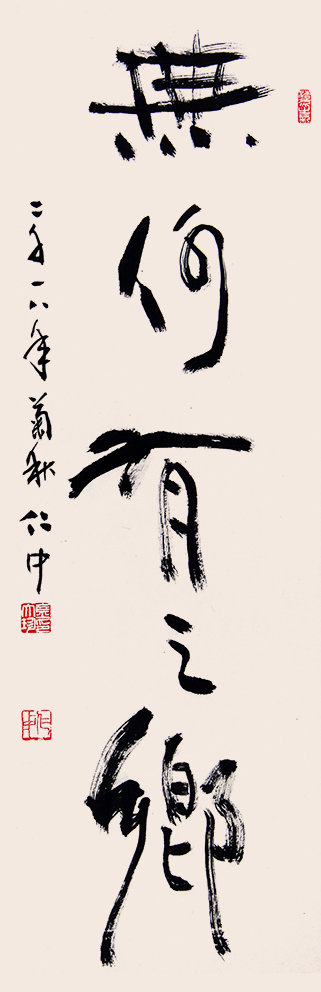 無何有之鄉
二〇一八年菊秋仁中